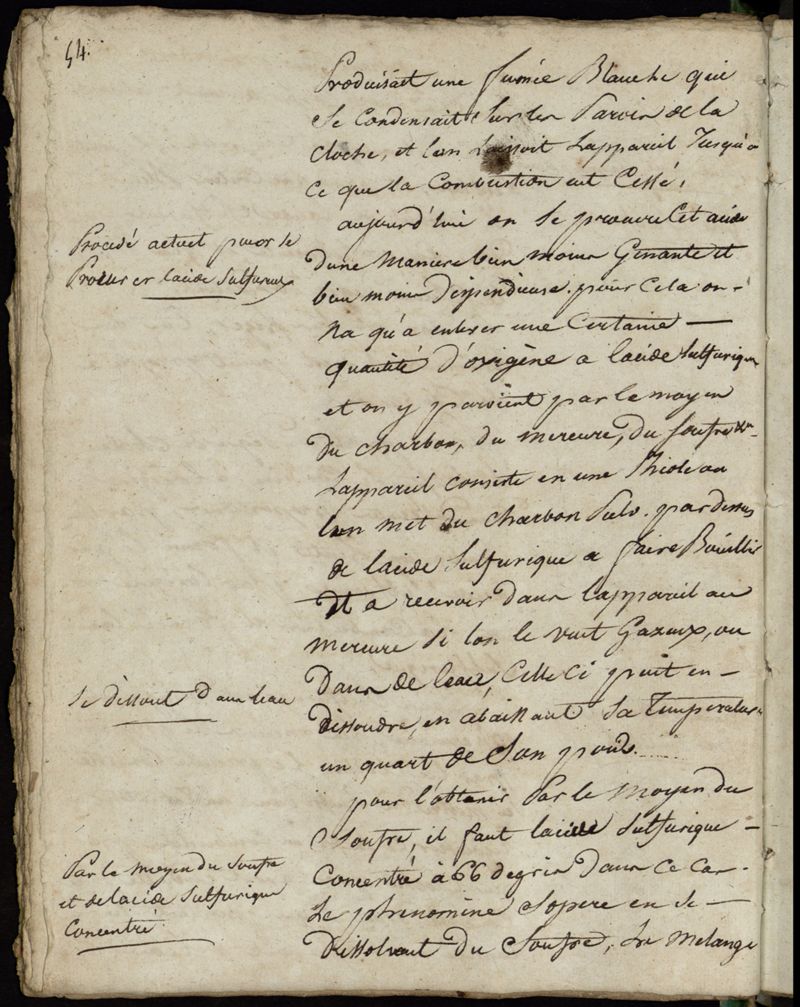 54.
Produisait une fumée Blanche qui
Se Condensait Sur les Parois de la
Cloche, et l'on Laissoit Lappareil Jusqu'a
Ce que la Combustion eut Cessé,
aujourd'hui on Se procure Cet acide
Procédé actuel pour se
Procurer lacide Sulfureux
dune Maniere bien moins Genante et
bien moins Dispendieuse. pour Cela on
Na qu'a enlever une Certaine
quantité d'oxigène a lacide Sulfurique
et on y parvient par le moyen
Du Charbon, du mercure, du Soufre &a
Lappareil consiste en une Phiole ou
lon met du Charbon Pulv. par dessus
de lacide Sulfurique a faire Bouillir
Et a recevoir Dans l'appareil au
mercure Si lon le veut Gazeux, ou
Dans de leau, Celle Ci peut en
Se dissout Dans leau
dissoudre, en abaissant Sa Temperature
un quart de Son poids.
pour l'obtenir Par le Moyen du
Soufre, il faut lacide Sulfurique
Par le moyen du Soufre
et de lacide Sulfurique
Concentré
Concentré à 66 degrés Dans Ce Cas
Le phenomène Sopere en Se
Dissolvant du Soufre, Le Melange